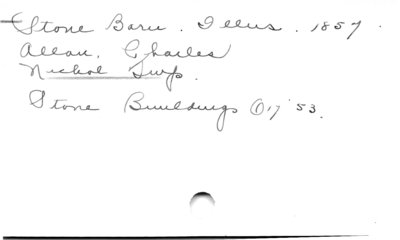 Stone Barn. Illus. 1857.
Allan, Charles
Nichol Twp.
Stone Buildings O 17 '53.